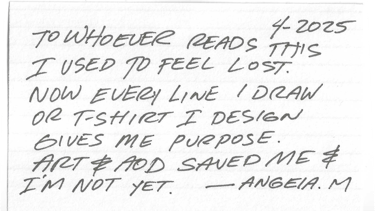 4-2025
TO WHOEVER READS THIS
I USED TO FEEL LOST.
NOW EVERY LINE I DRAW
OR T-SHIRT I DESIGN
GIVES ME PURPOSE.
ART & AOD SAVED ME &
I'M NOT YET. — ANGEIA. M